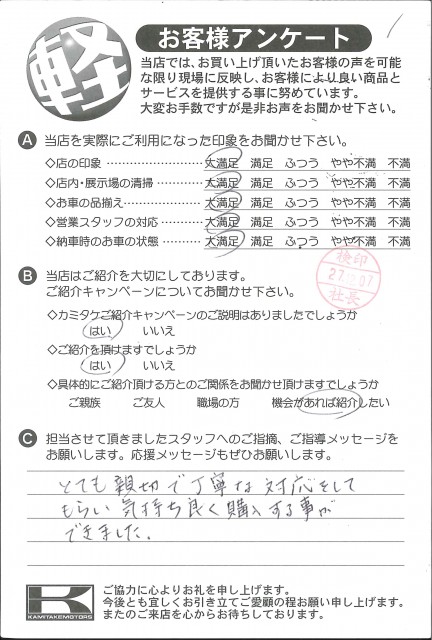 軽
お客様アンケート
当店では、お買い上げ頂いたお客様の声を可能
な限り現場に反映し、お客様により良い商品と
サービスを提供する事に努めています。
大変お手数ですが是非お声をお聞かせ下さい。
A 当店を実際にご利用になった印象をお聞かせ下さい。
◇店の印象 ………………… 大満足 満足 ふつう やや不満 不満
◇店内・展示場の清掃 ………… 大満足 満足 ふつう やや不満 不満
◇お車の品揃え ……………… 大満足 満足 ふつう やや不満 不満
◇営業スタッフの対応 ………… 大満足 満足 ふつう やや不満 不満
◇納車時のお車の状態 ………… 大満足 満足 ふつう やや不満 不満
B 当店はご紹介を大切にしております。
ご紹介キャンペーンについてお聞かせ下さい。
検印
社長
◇カミタケご紹介キャンペーンのご説明はありましたでしょうか
はい いいえ
◇ご紹介を頂けますでしょうか
はい いいえ
◇具体的にご紹介頂ける方とのご関係をお聞かせ頂けますでしょうか
ご親族 ご友人 職場の方 機会があれば紹介したい
C 担当させて頂きましたスタッフへのご指摘、ご指導メッセージを
お願いします。応援メッセージもぜひお願いします。
とても親切で丁寧な対応をして
もらい気持ち良く購入する事が
できました。
K
KAMITAKEMOTORS
ご協力に心よりお礼を申し上げます。
今後とも宜しくお引き立てご愛顧の程お願い申し上げます。
またのご来店を心からお待ちしております。